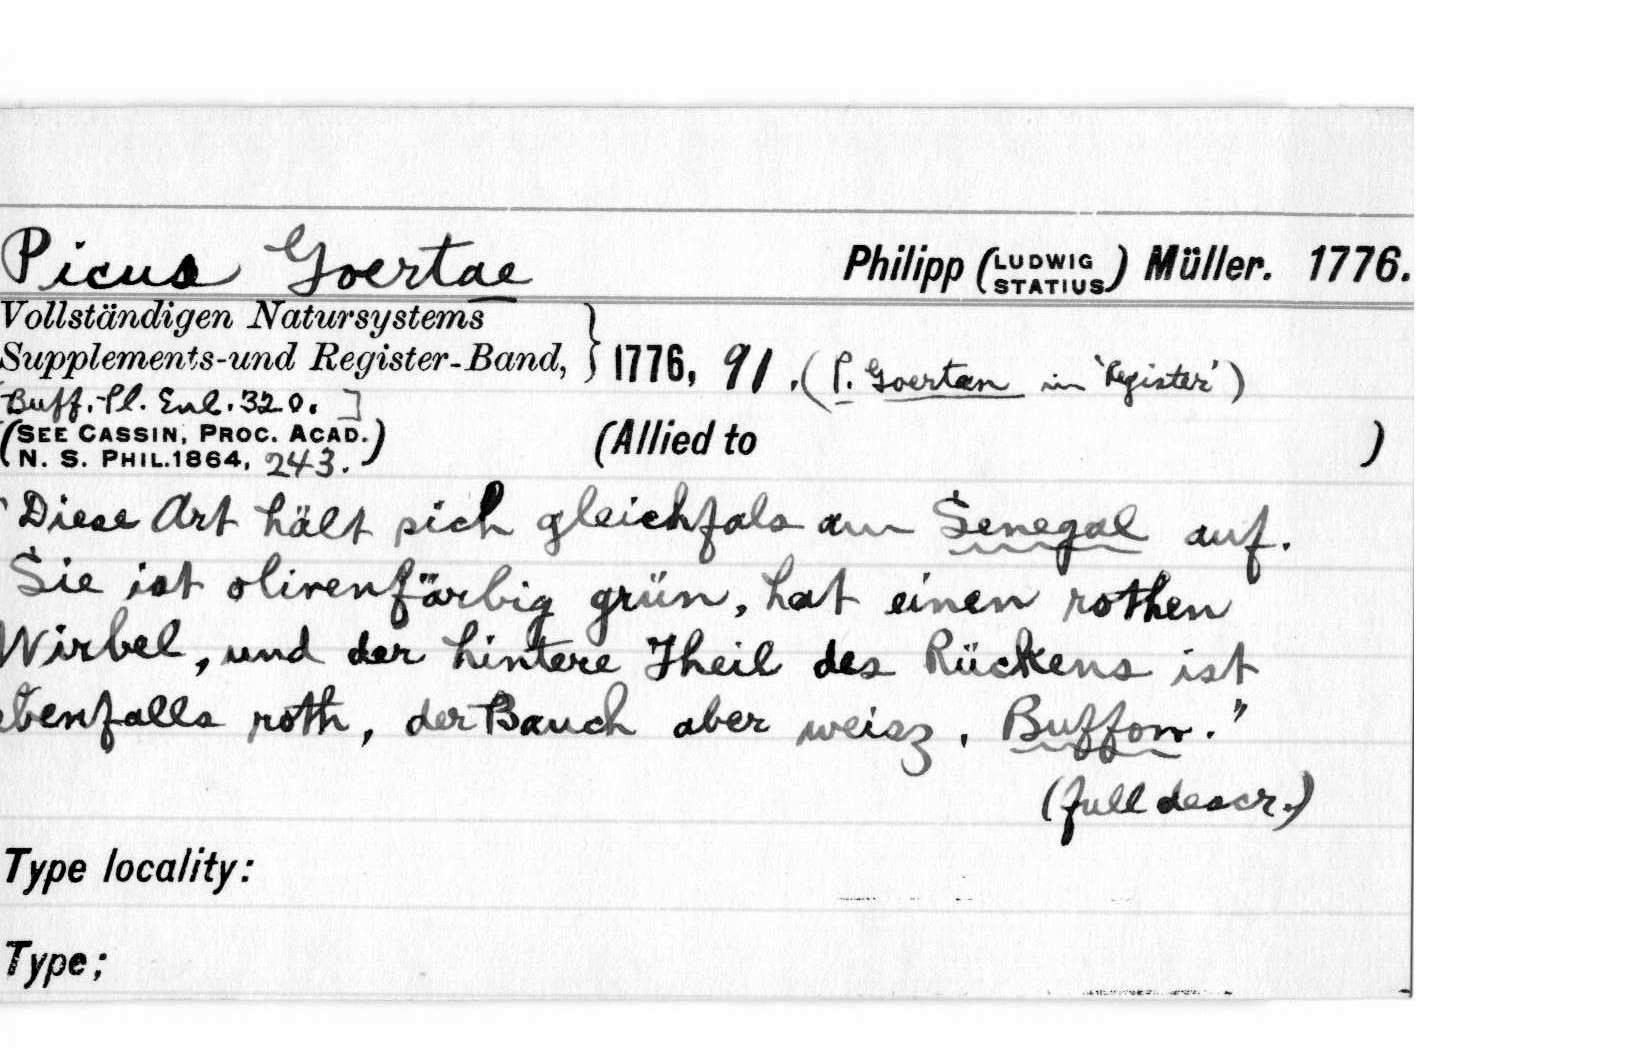 Picus Goertae Philipp (LUDWIG STATIUS) Müller. 1776.
Vollständigen Natursystems
Supplements-und Register-Band, } 1776, 91. (P. Goertan in 'Register')
[Buff. Pl. Enl. 320.]
(SEE CASSIN, PROC. ACAD.
N. S. PHIL. 1864, 243.) (Allied to )
"Diese Art hält sich gleichfals am Senegal auf.
Sie ist olivenfärbig grün, hat einen rothen
Wirbel, und der hintere Theil des Rückens ist
ebenfalls roth, der Bauch aber weisz. Buffon."
(full descr.)
Type locality:
Type;